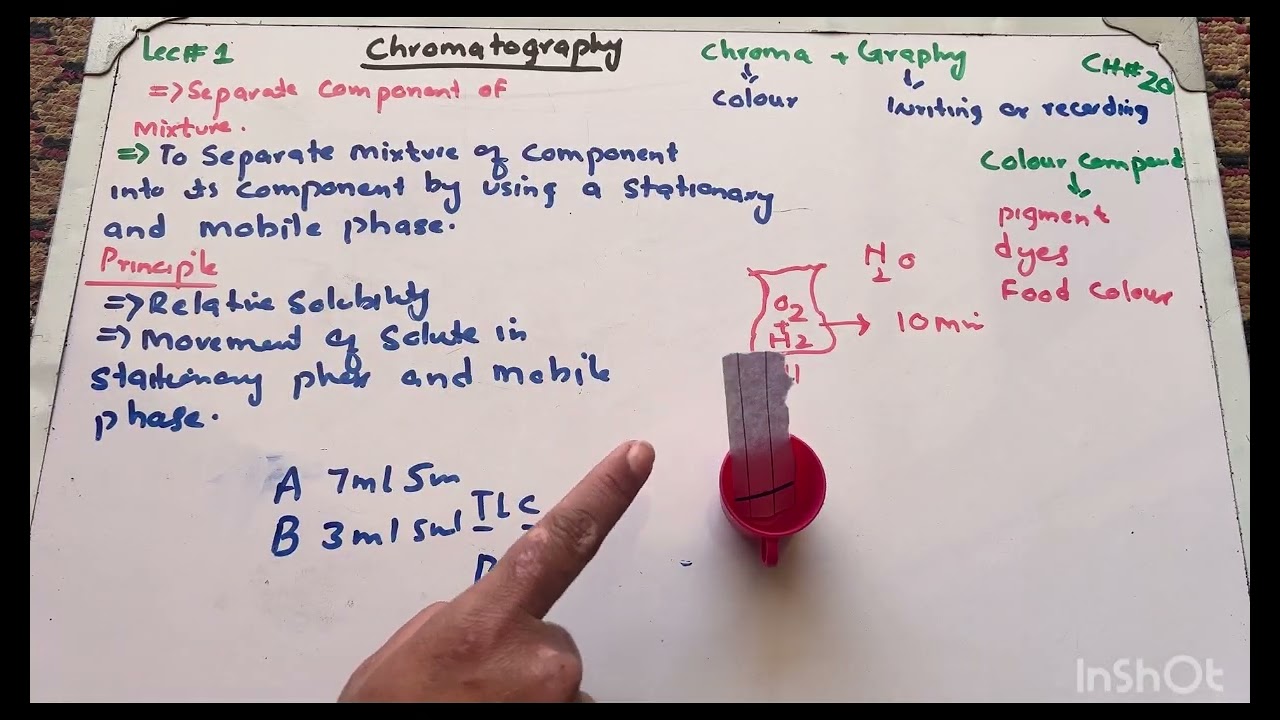 Lec# 1
Chromatography
Chroma + Graphy
CH# 20
colour
writing or recording
=> Separate component of
mixture.
=> To Separate mixture of component
into its component by using a stationary
and mobile phase.
Colour compound
pigment
dyes
Food Colour
Principle
=> Relative Solubility
=> Movement of Solute in
stationary phase and mobile
phase.
H2O
O2
+
H2
10 min
A 7ml 5m
B 3ml 5ml
TLC
InShOt